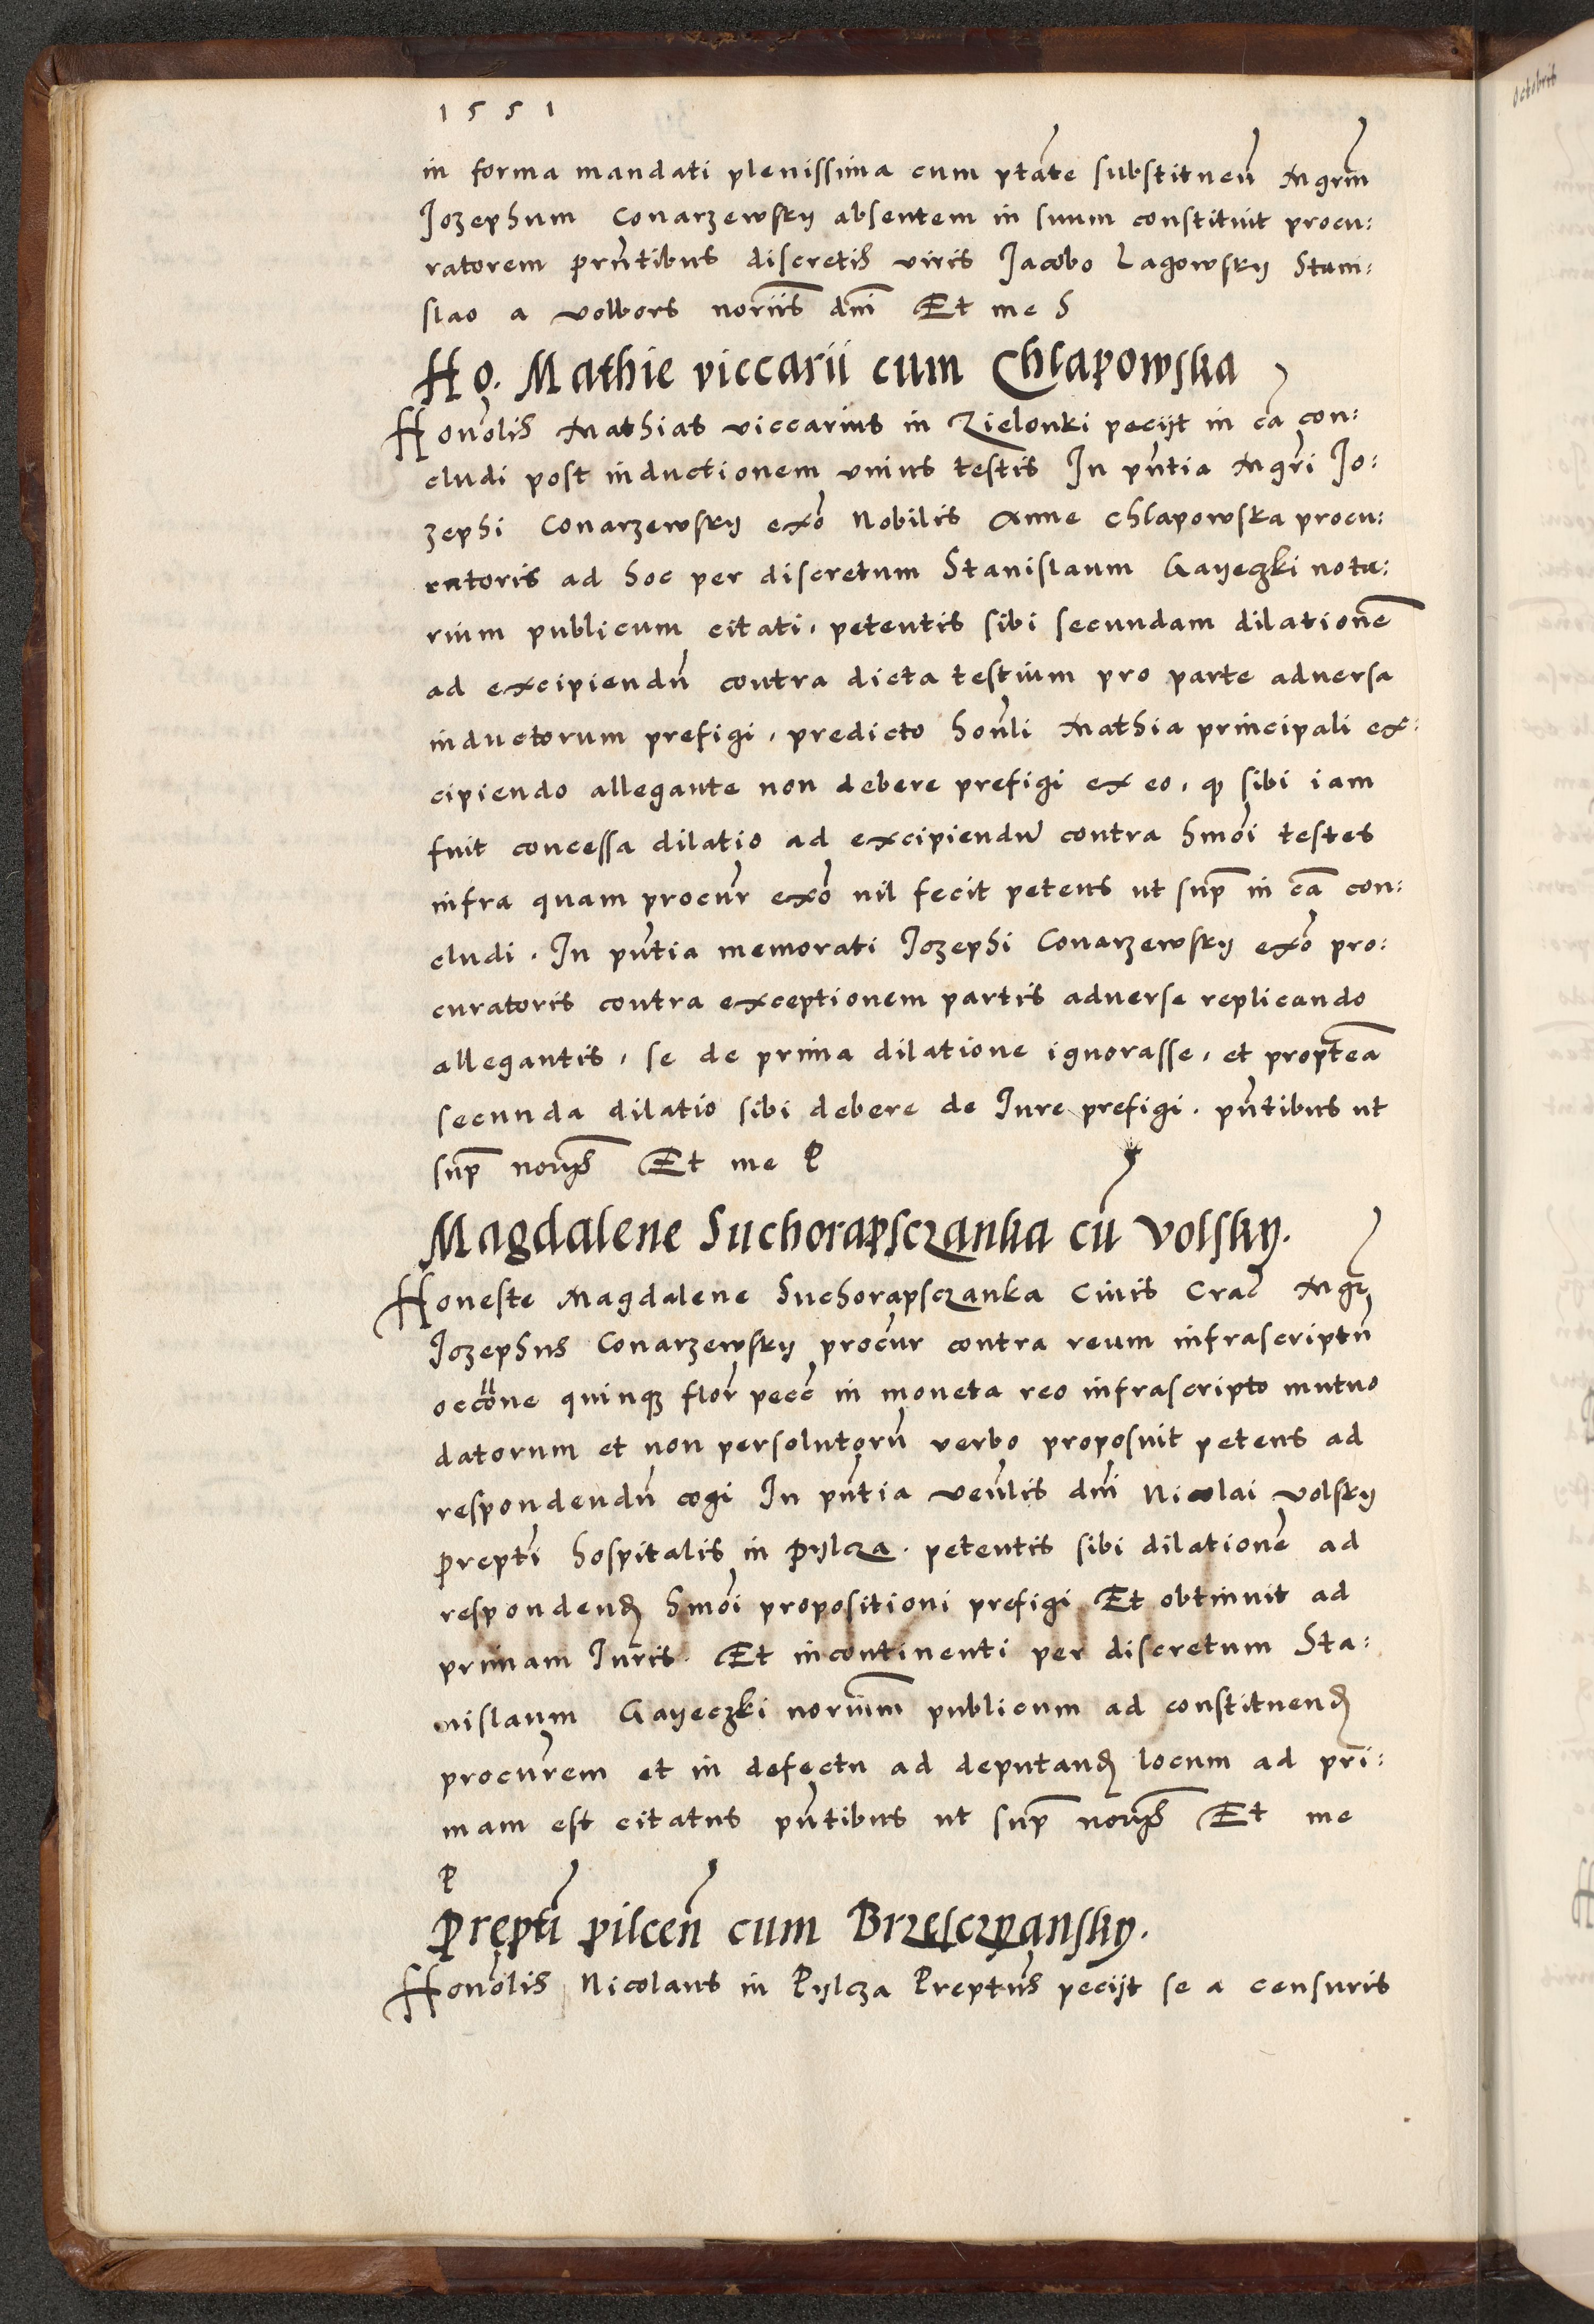 1551
in forma mandati plenissima cum ptāte substituen̄ Mgrm̄
Jozephum Conarzewsky absentem in suum constituit procu:
ratorem prn̄tibus discretis viris Jacobo Lagowsky Stani:
slao a volbors noriis dni Et me S
Ho. Mathie viccarii cum Chlapowska
Honōlis Mathias viccarius in Zielonki peciit in cā con:
cludi post inductionem unius testis In pn̄tia Mgri Jo:
zephi Conarzewsky exō Nobilis Anne Chlapowska procu:
ratoris ad hoc per discretum Stanislaum Gayeczki nota:
rium publicum citati, petentis sibi secundam dilationē
ad excipiendn̄ contra dicta testium pro parte adversa
inductorum prefigi, predicto honl̄i Mathia principali ex:
cipiendo allegante non debere prefigi ex eo, qp sibi iam
fuit concessa dilatio ad excipiendū contra hmōi testes
infra quam procur̄ exō nil fecit petens ut sup̄ in cā con:
cludi. In pn̄tia memorati Jozephi Conarzewsky exō pro:
curatoris contra exceptionem partis adverse replicando
allegantis, se de prima dilatione ignorasse, et proptēa
secunda dilatio sibi debere de Jure prefigi. pn̄tibus ut
sup̄ Et me P
Magdalene Suchorapsczanka cū Volsky.
Honeste Magdalene Suchorapsczanka Civis Crac̄ Mgr
Jozephus Conarzewsky procur̄ contra reum infrascriptū
occōne quinqz flor̄ pecc̄ in moneta reo infrascripto mutuo
datorum et non persolutorū verbo proposuit petens ad
respondendū cogi In pn̄tia venl̄is dni Nicolai Volsky
prepti hospitalis in Pylcza. petentis sibi dilationē ad
respondend̄ hmōi propositioni prefigi Et obtinuit ad
primam Juris. Et incontinenti per discretum Sta:
nislaum Gayeczki norium̄ publicum ad constituend̄
procur̄em et in defectu ad deputand̄ locum ad pri:
mam est citatus pn̄tibus ut sup̄ Et me
P
Prepti pilcen̄ cum Brzesczyansky.
Honōlis Nicolaus in Pylcza Preptus peciit se a censuris